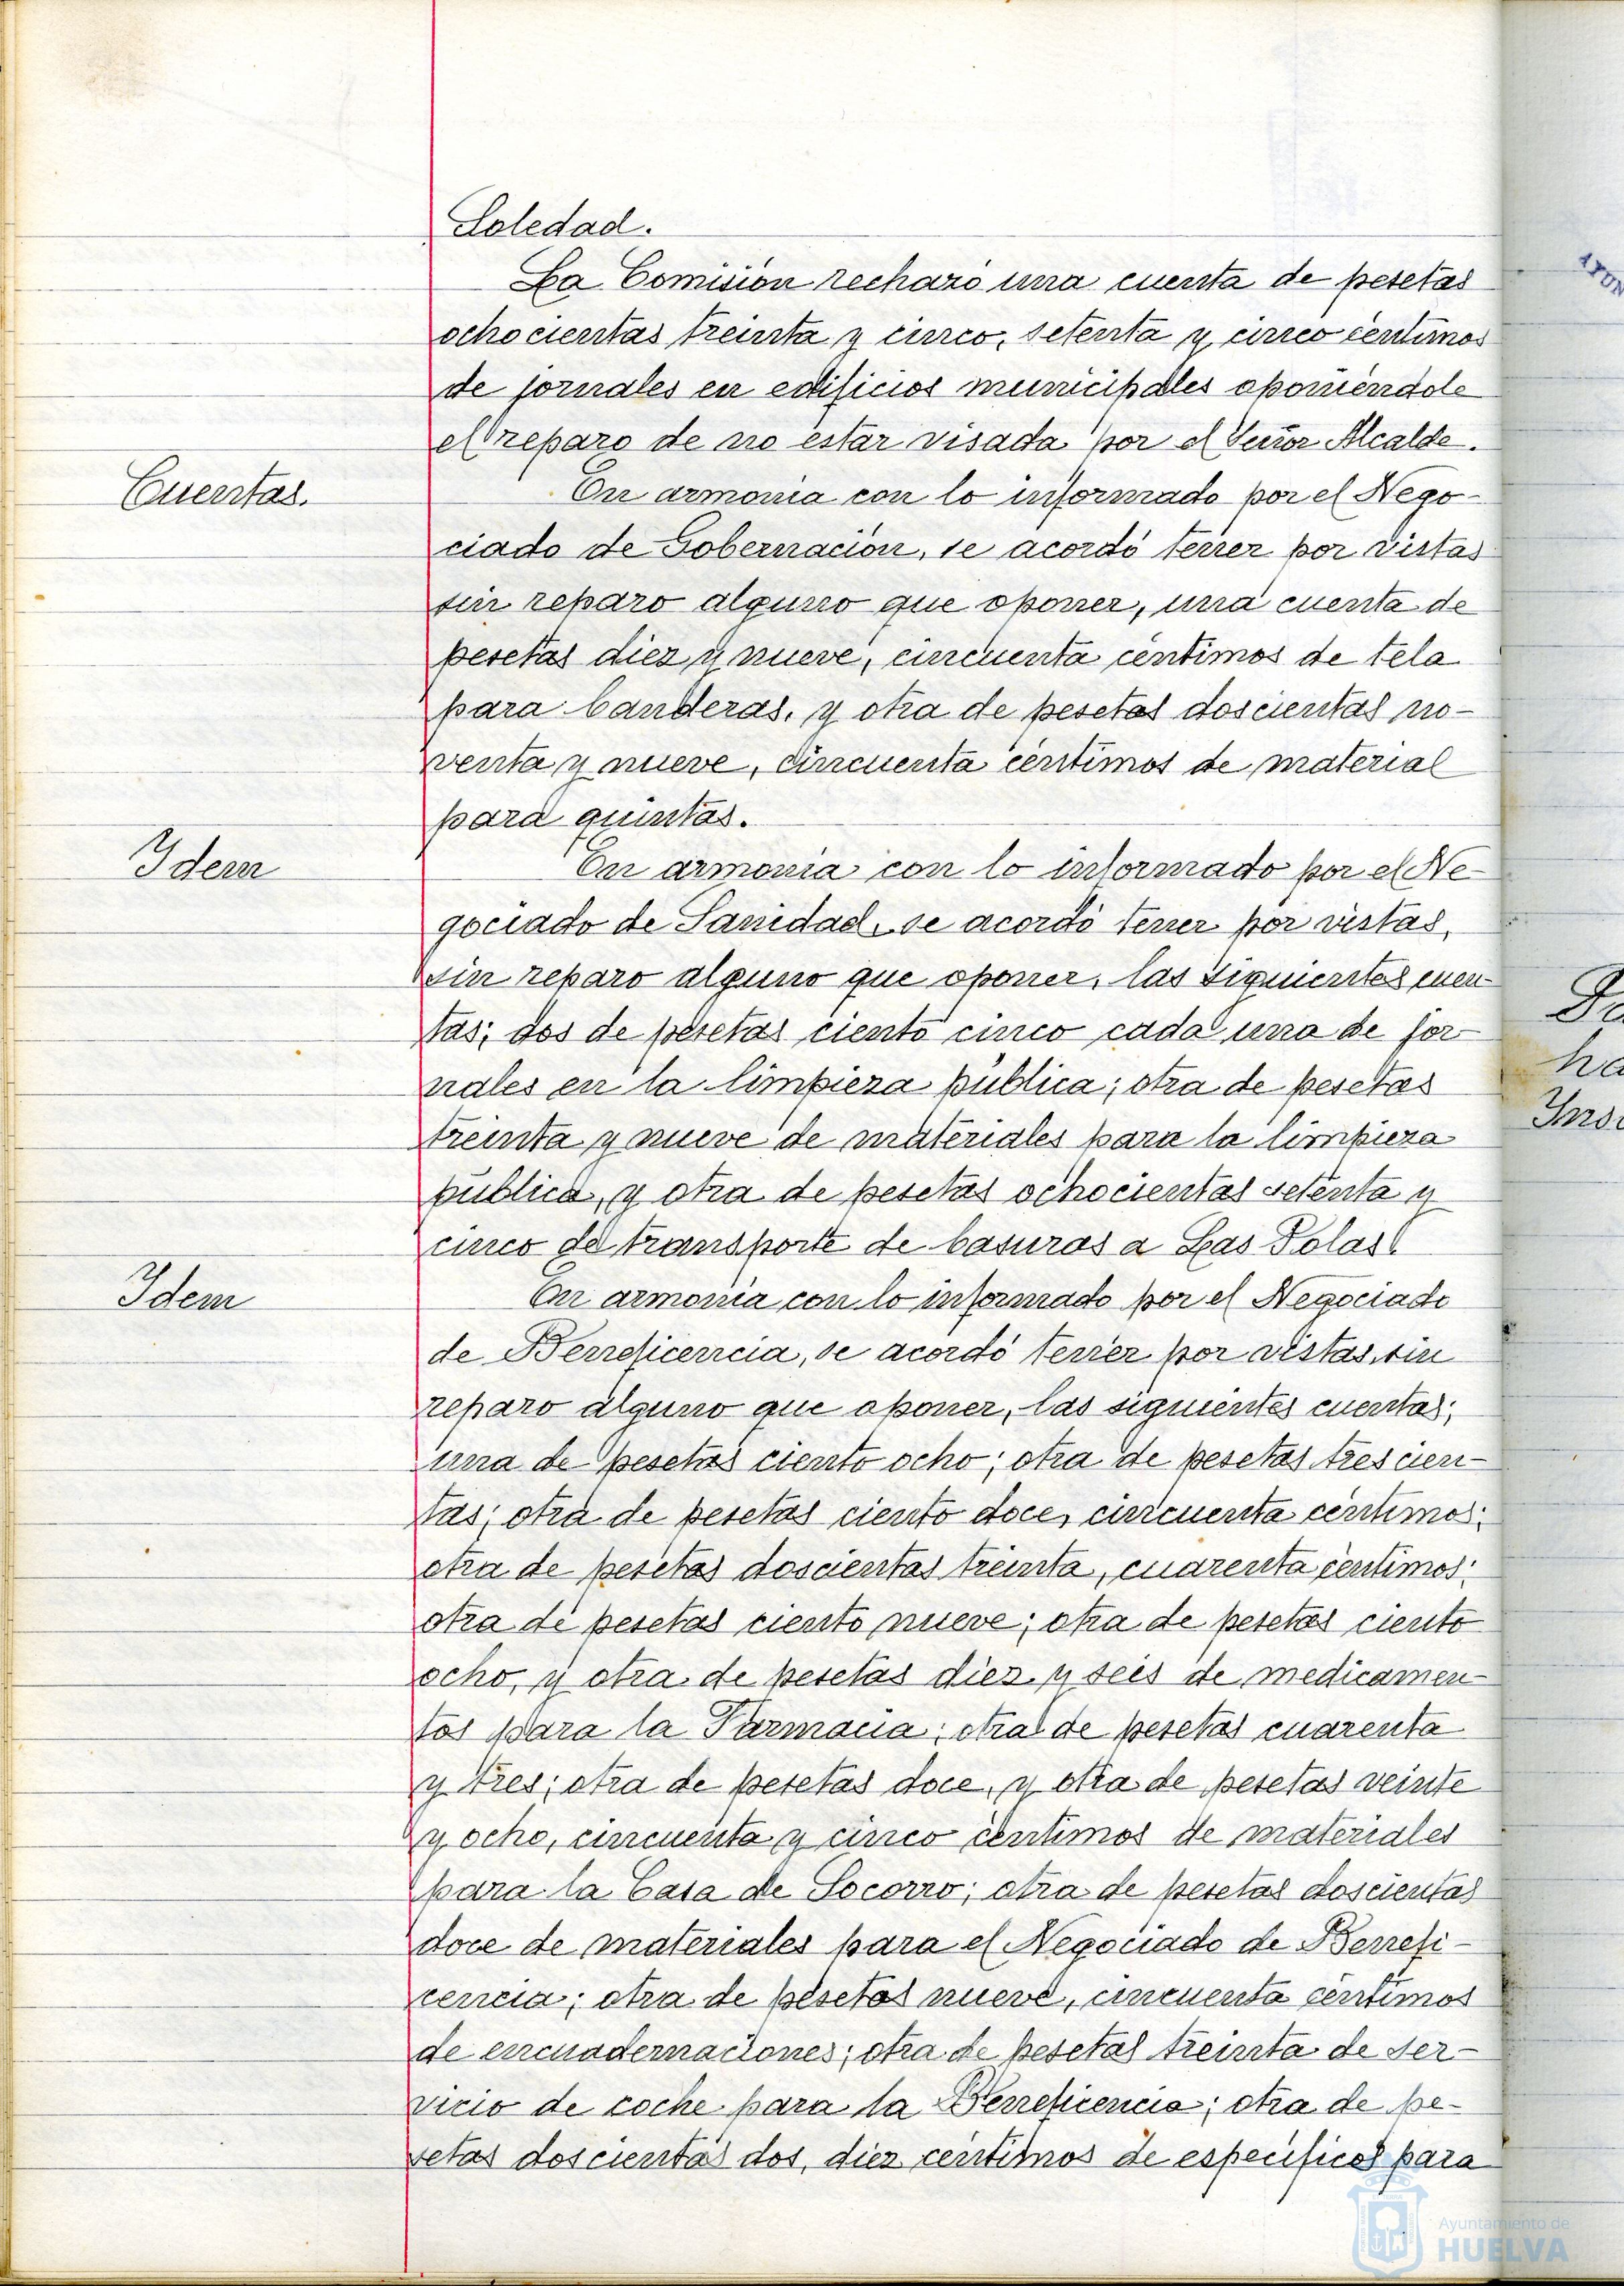 Soledad.
La Comisión rechazó una cuenta de pesetas
ochocientas treinta y cinco, setenta y cinco céntimos
de jornales en edificios municipales oponiéndole
el reparo de no estar visada por el Señor Alcalde.
Cuentas.
En armonía con lo informado por el Nego-
ciado de Gobernación, se acordó tener por vistas
sin reparo alguno que oponer, una cuenta de
pesetas diez y nueve, cincuenta céntimos de tela
para banderas, y otra de pesetas doscientas no-
venta y nueve, cincuenta céntimos de material
para quintas.
Idem
En armonía con lo informado por el Ne-
gociado de Sanidad, se acordó tener por vistas,
sin reparo alguno que oponer, las siguientes cuen-
tas: dos de pesetas ciento cinco cada una de jor-
nales en la limpieza pública; otra de pesetas
treinta y nueve de materiales para la limpieza
pública, y otra de pesetas ochocientas setenta y
cinco de transporte de basuras a Las Polas.
Idem
En armonía con lo informado por el Negociado
de Beneficencia, se acordó tener por vistas, sin
reparo alguno que oponer, las siguientes cuentas:
una de pesetas ciento ocho; otra de pesetas trescien-
tas; otra de pesetas ciento doce, cincuenta céntimos;
otra de pesetas doscientas treinta, cuarenta céntimos;
otra de pesetas ciento nueve; otra de pesetas ciento
ocho, y otra de pesetas diez y seis de medicamen-
tos para la Farmacia; otra de pesetas cuarenta
y tres; otra de pesetas doce, y otra de pesetas veinte
y ocho, cincuenta y cinco céntimos de materiales
para la Casa de Socorro; otra de pesetas doscientas
doce de materiales para el Negociado de Benefi-
cencia; otra de pesetas nueve, cincuenta céntimos
de encuadernaciones; otra de pesetas treinta de ser-
vicio de coche para la Beneficencia; otra de pe-
setas doscientas dos, diez céntimos de específicos para
Ayuntamiento de
HUELVA